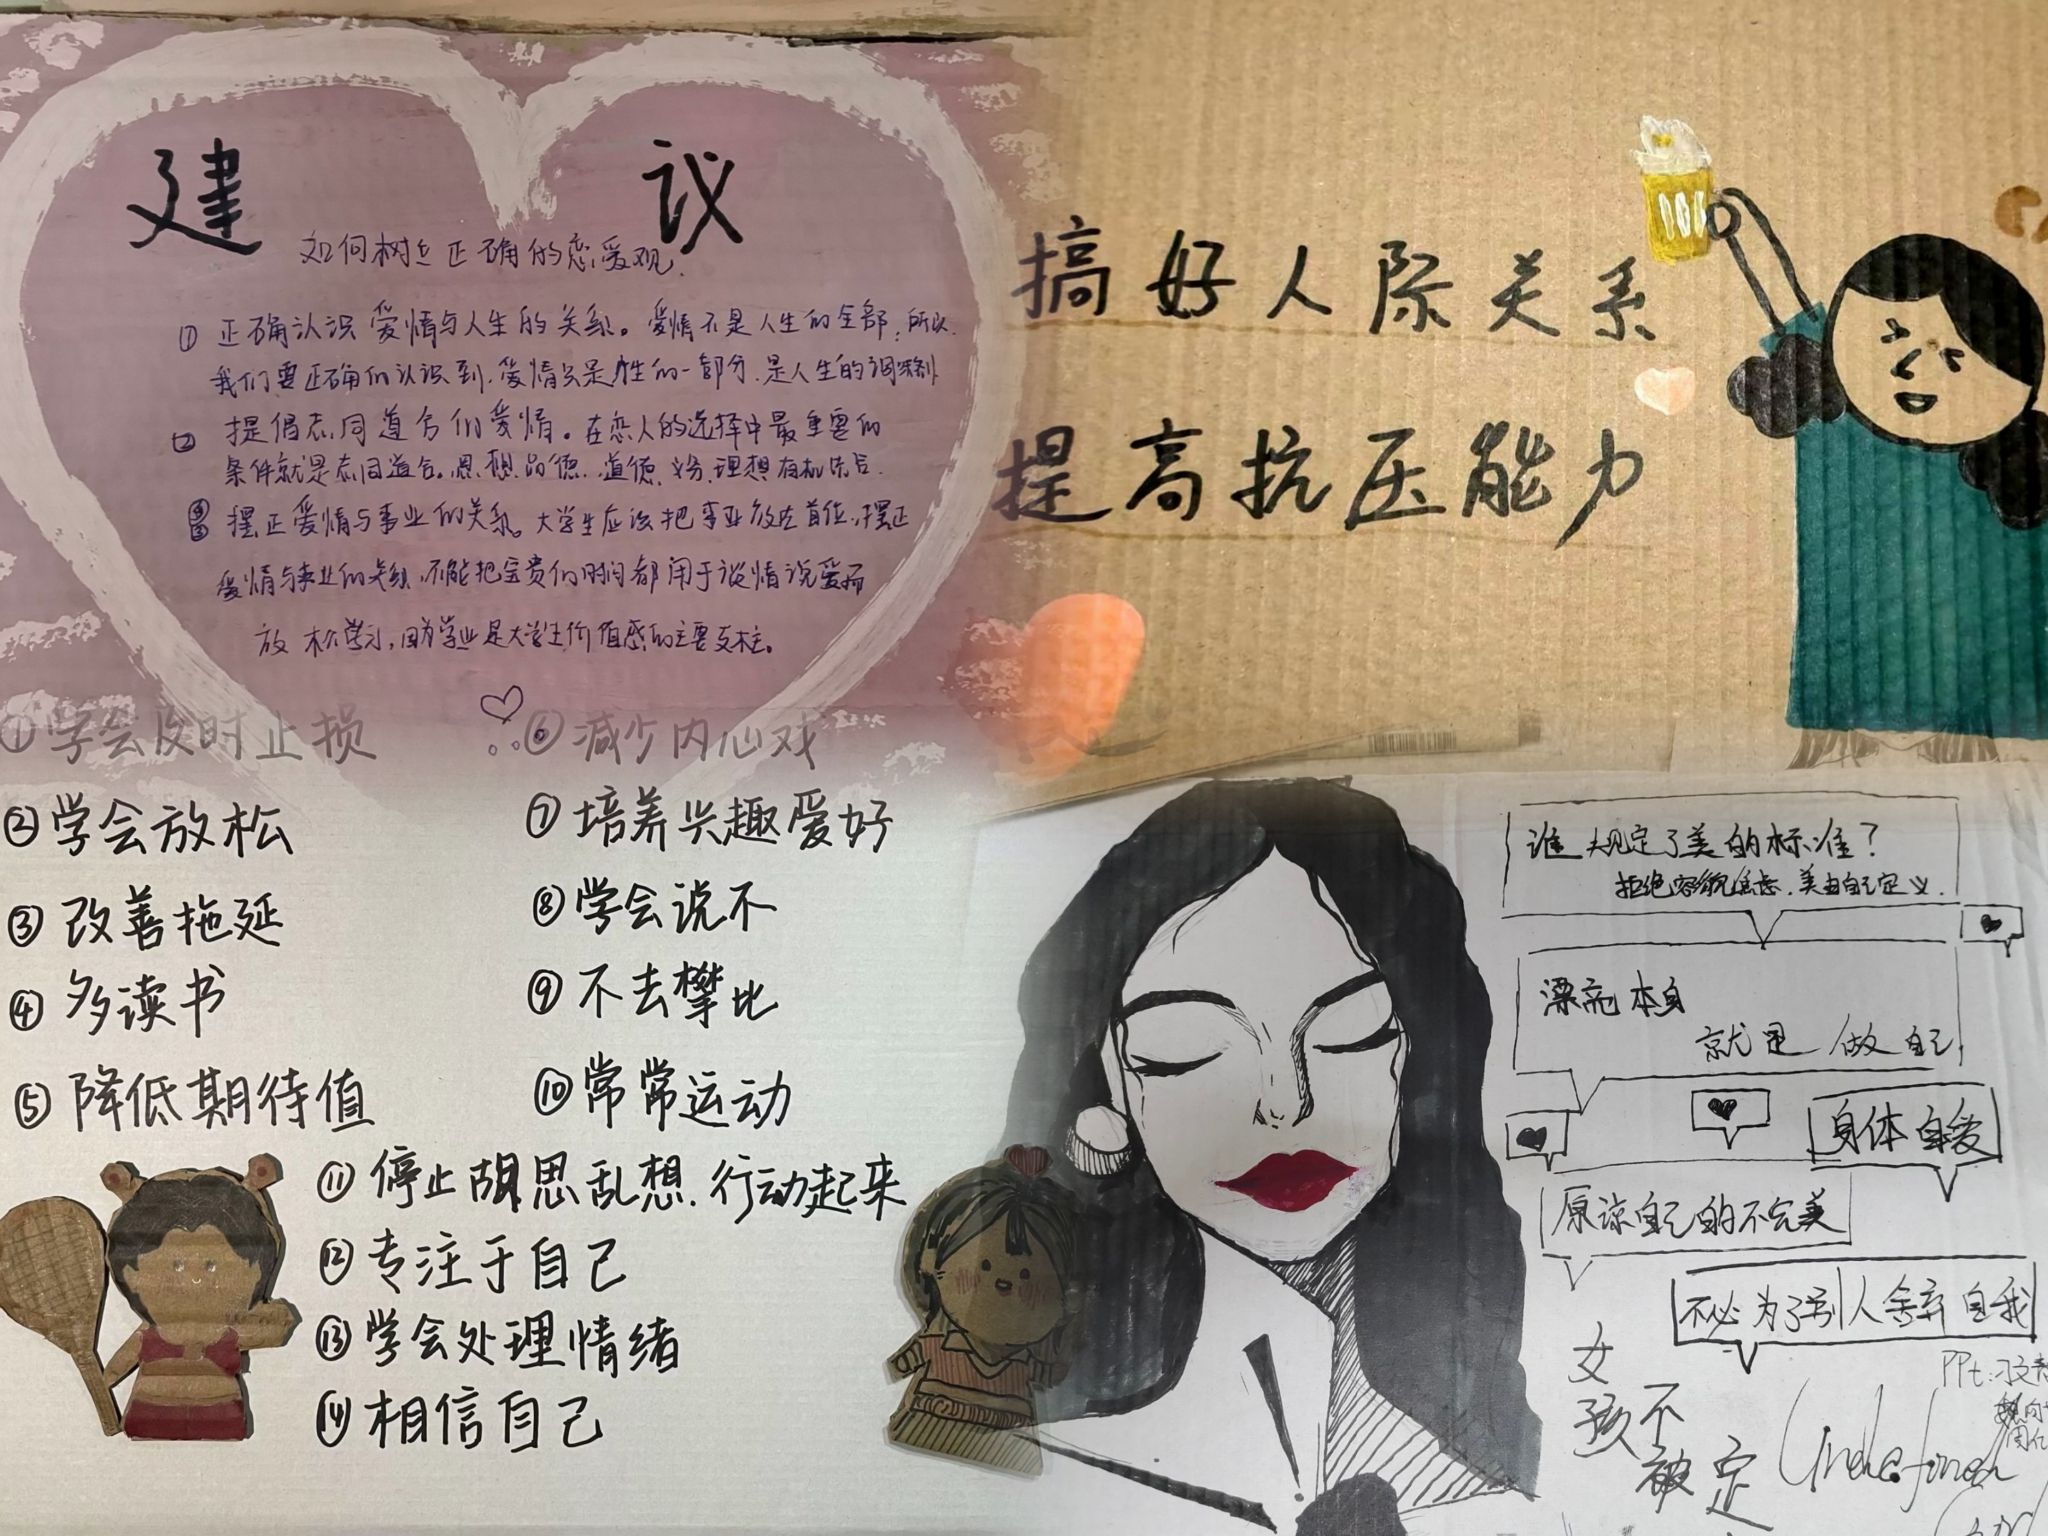 建议
如何树立正确的恋爱观.
① 正确认识爱情与人生的关系。爱情不是人生的全部,所以
我们要正确的认识到,爱情只是人生的一部分,是人生的调味剂
② 提倡志同道合们爱情。在恋人的选择中最重要的
条件就是志同道合。思想品德.道德.义务.理想有机结合.
③ 摆正爱情与事业的关系。大学生应该把事业放在首位,摆正
爱情与事业的关系,不能把宝贵的时间都用于谈情说爱而
放松学习,因为学业是大学生价值感的主要支柱。
搞好人际关系
提高抗压能力
①学会及时止损
②学会放松
③改善拖延
④多读书
⑤降低期待值
⑥减少内心戏
⑦培养兴趣爱好
⑧学会说不
⑨不去攀比
⑩常常运动
⑪停止胡思乱想.行动起来
⑫专注于自己
⑬学会处理情绪
⑭相信自己
谁规定了美的标准?
拒绝容貌焦虑.美由自己定义.
漂亮本身
就是做自己,
身体自爱
原谅自己的不完美
不必为了别人舍弃自我
女孩不被定